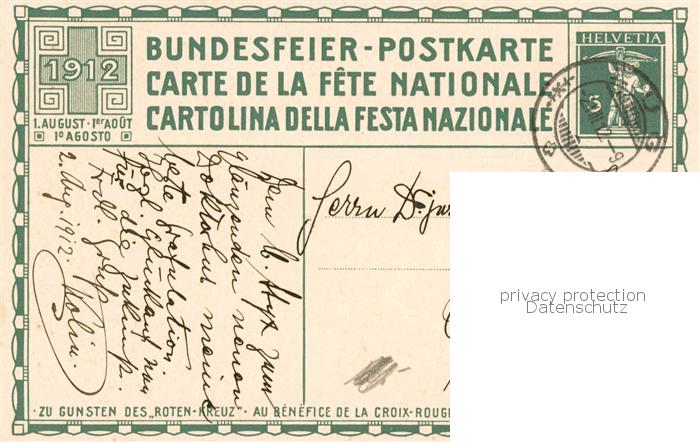 1912
1. AUGUST · 1er AOÛT
1º AGOSTO
BUNDESFEIER - POSTKARTE
CARTE DE LA FÊTE NATIONALE
CARTOLINA DELLA FESTA NAZIONALE
HELVETIA
5
Herrn Dr. jur
Dem
glänzenden neuen
Doktorhut meine
beste Gratulation
für die Zukunft.
Frdl. Gruß
2. Aug. 1912.
privacy protection
Datenschutz
· ZU GUNSTEN DES „ROTEN-KREUZ" · AU BÉNÉFICE DE LA CROIX-ROUG